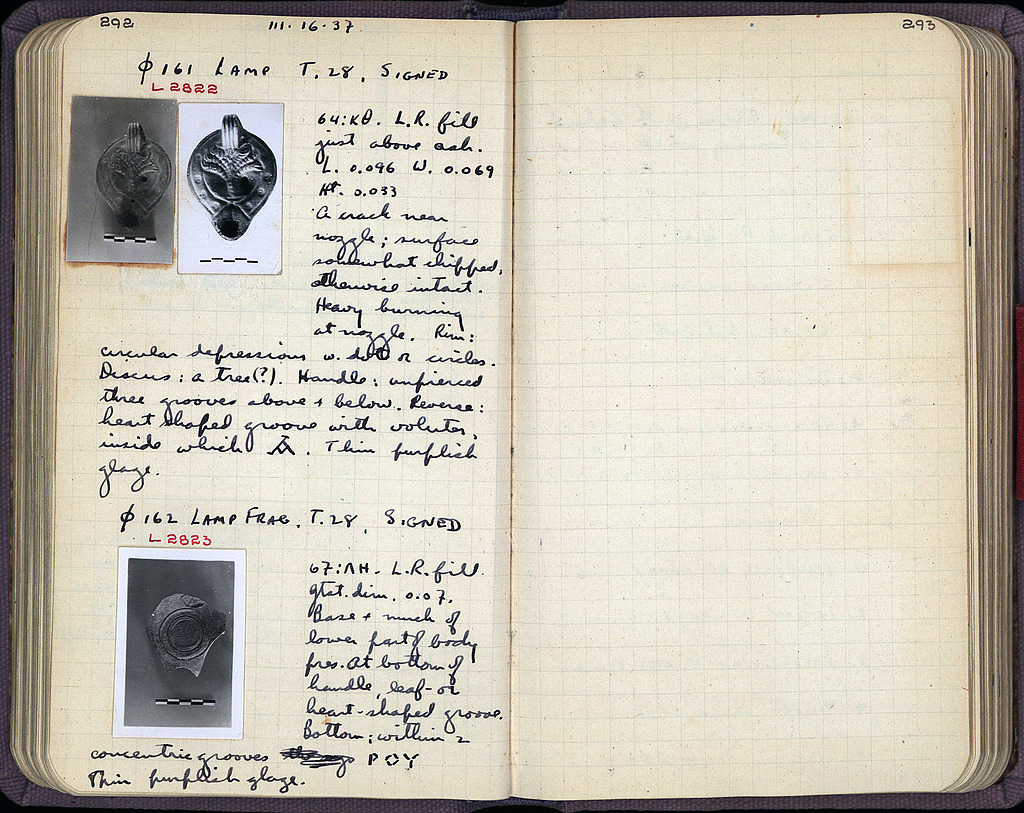 292
III·16·37
293
φ 161 LAMP T.28, SIGNED
L 2822
64:ΚΘ. L.R. fill
just above ash.
L. 0.096 W. 0.069
Ht. 0.033
A crack near
nozzle; surface
somewhat chipped,
otherwise intact.
Heavy burning
at nozzle. Rim:
circular depressions w. dot or circles.
Discus: a tree(?). Handle: unpierced
three grooves above + below. Reverse:
heart shaped groove with volutes,
inside which . Thin purplish
glaze.
φ 162 LAMP FRAG. T.28, SIGNED
L 2823
67:ΛΗ. L.R. fill.
gtst. dim. 0.07.
Base + much of
lower part of body
pres. At bottom of
handle, leaf- or
heart-shaped groove.
Bottom; within 2
concentric grooves ΡΟΥ
Thin purplish glaze.